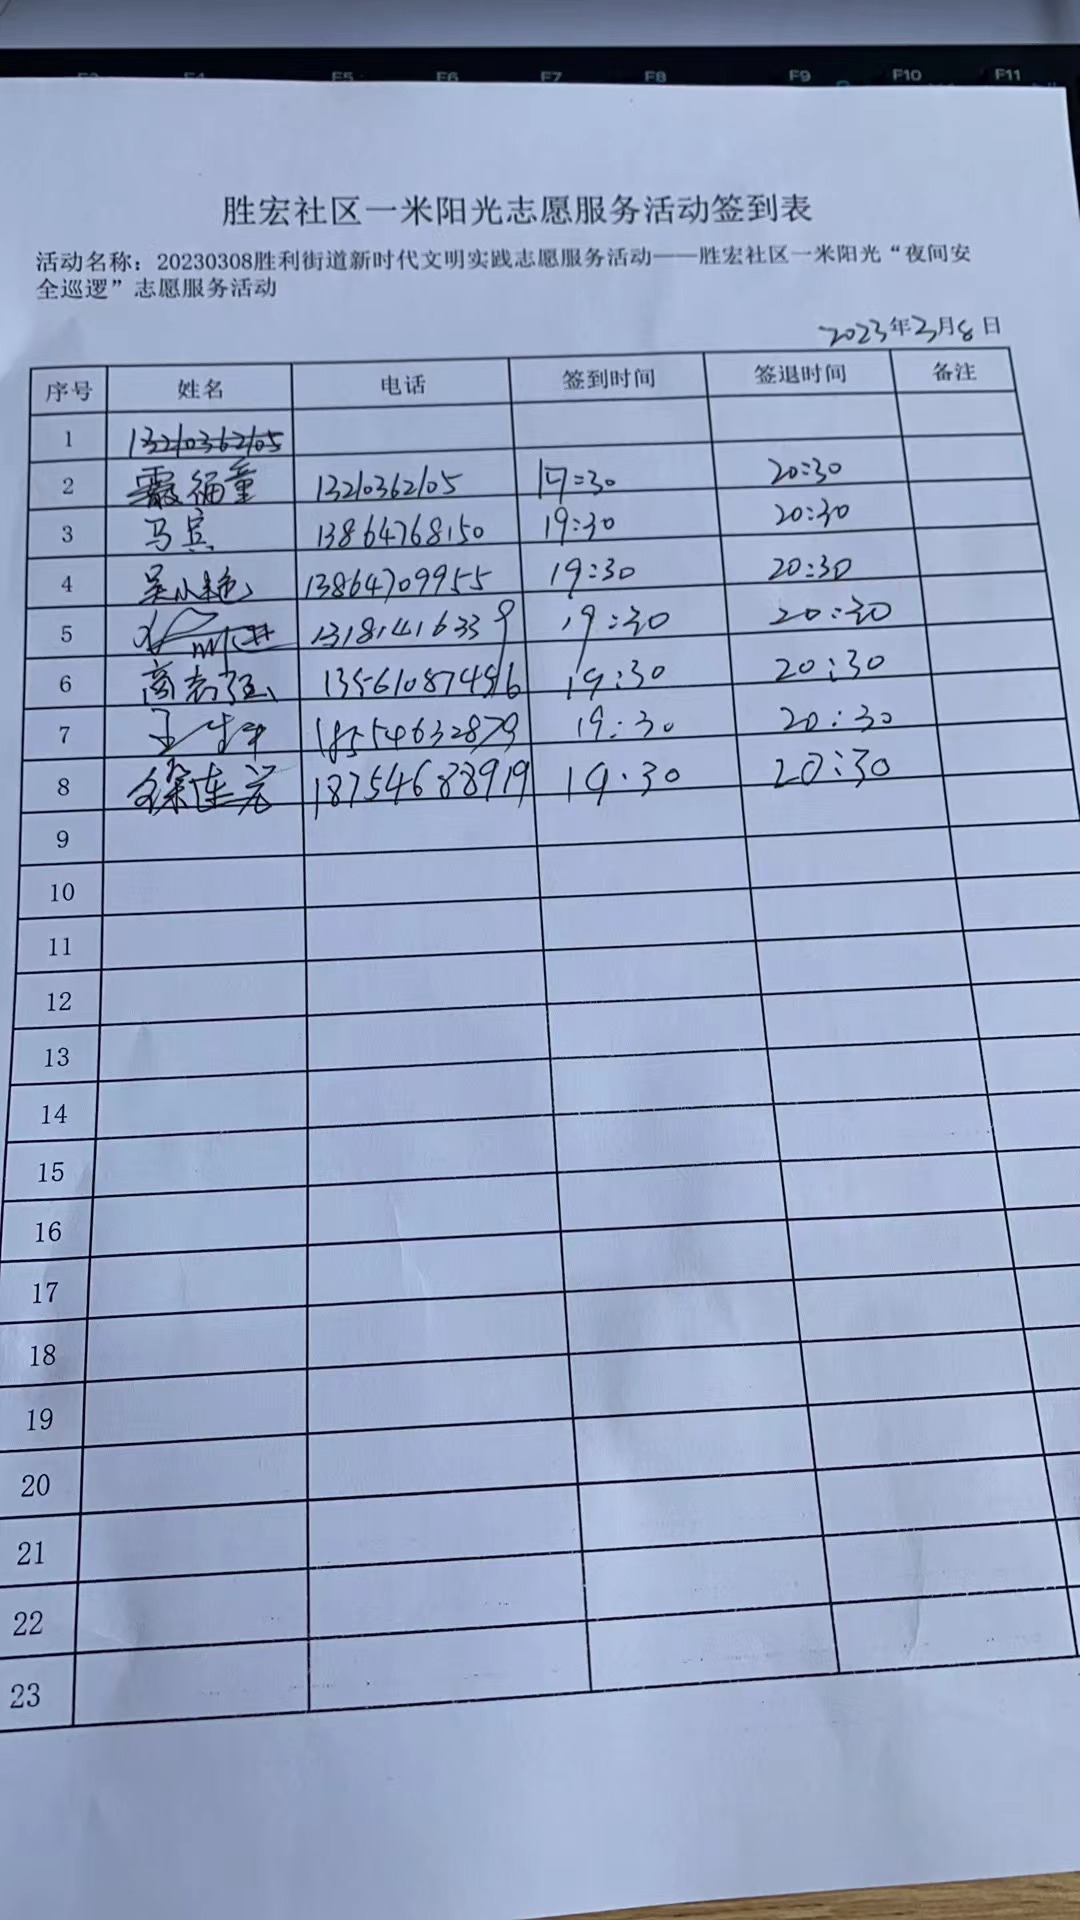 F5 F6 F7 F8 F9 F10 F11
胜宏社区一米阳光志愿服务活动签到表
活动名称：20230308胜利街道新时代文明实践志愿服务活动——胜宏社区一米阳光“夜间安
全巡逻”志愿服务活动
2023年3月8日
序号 姓名 电话 签到时间 签退时间 备注
1 13210362105
2 13210362105 19:30 20:30
3 马宾 13864768150 19:30 20:30
4 吴小艳 13864709955 19:30 20:30
5 13181416339 19:30 20:30
6 高志强 13561087456 19:30 20:30
7 18554632879 19:30 20:30
8 徐连芳 18754688919 19:30 20:30
9
10
11
12
13
14
15
16
17
18
19
20
21
22
23